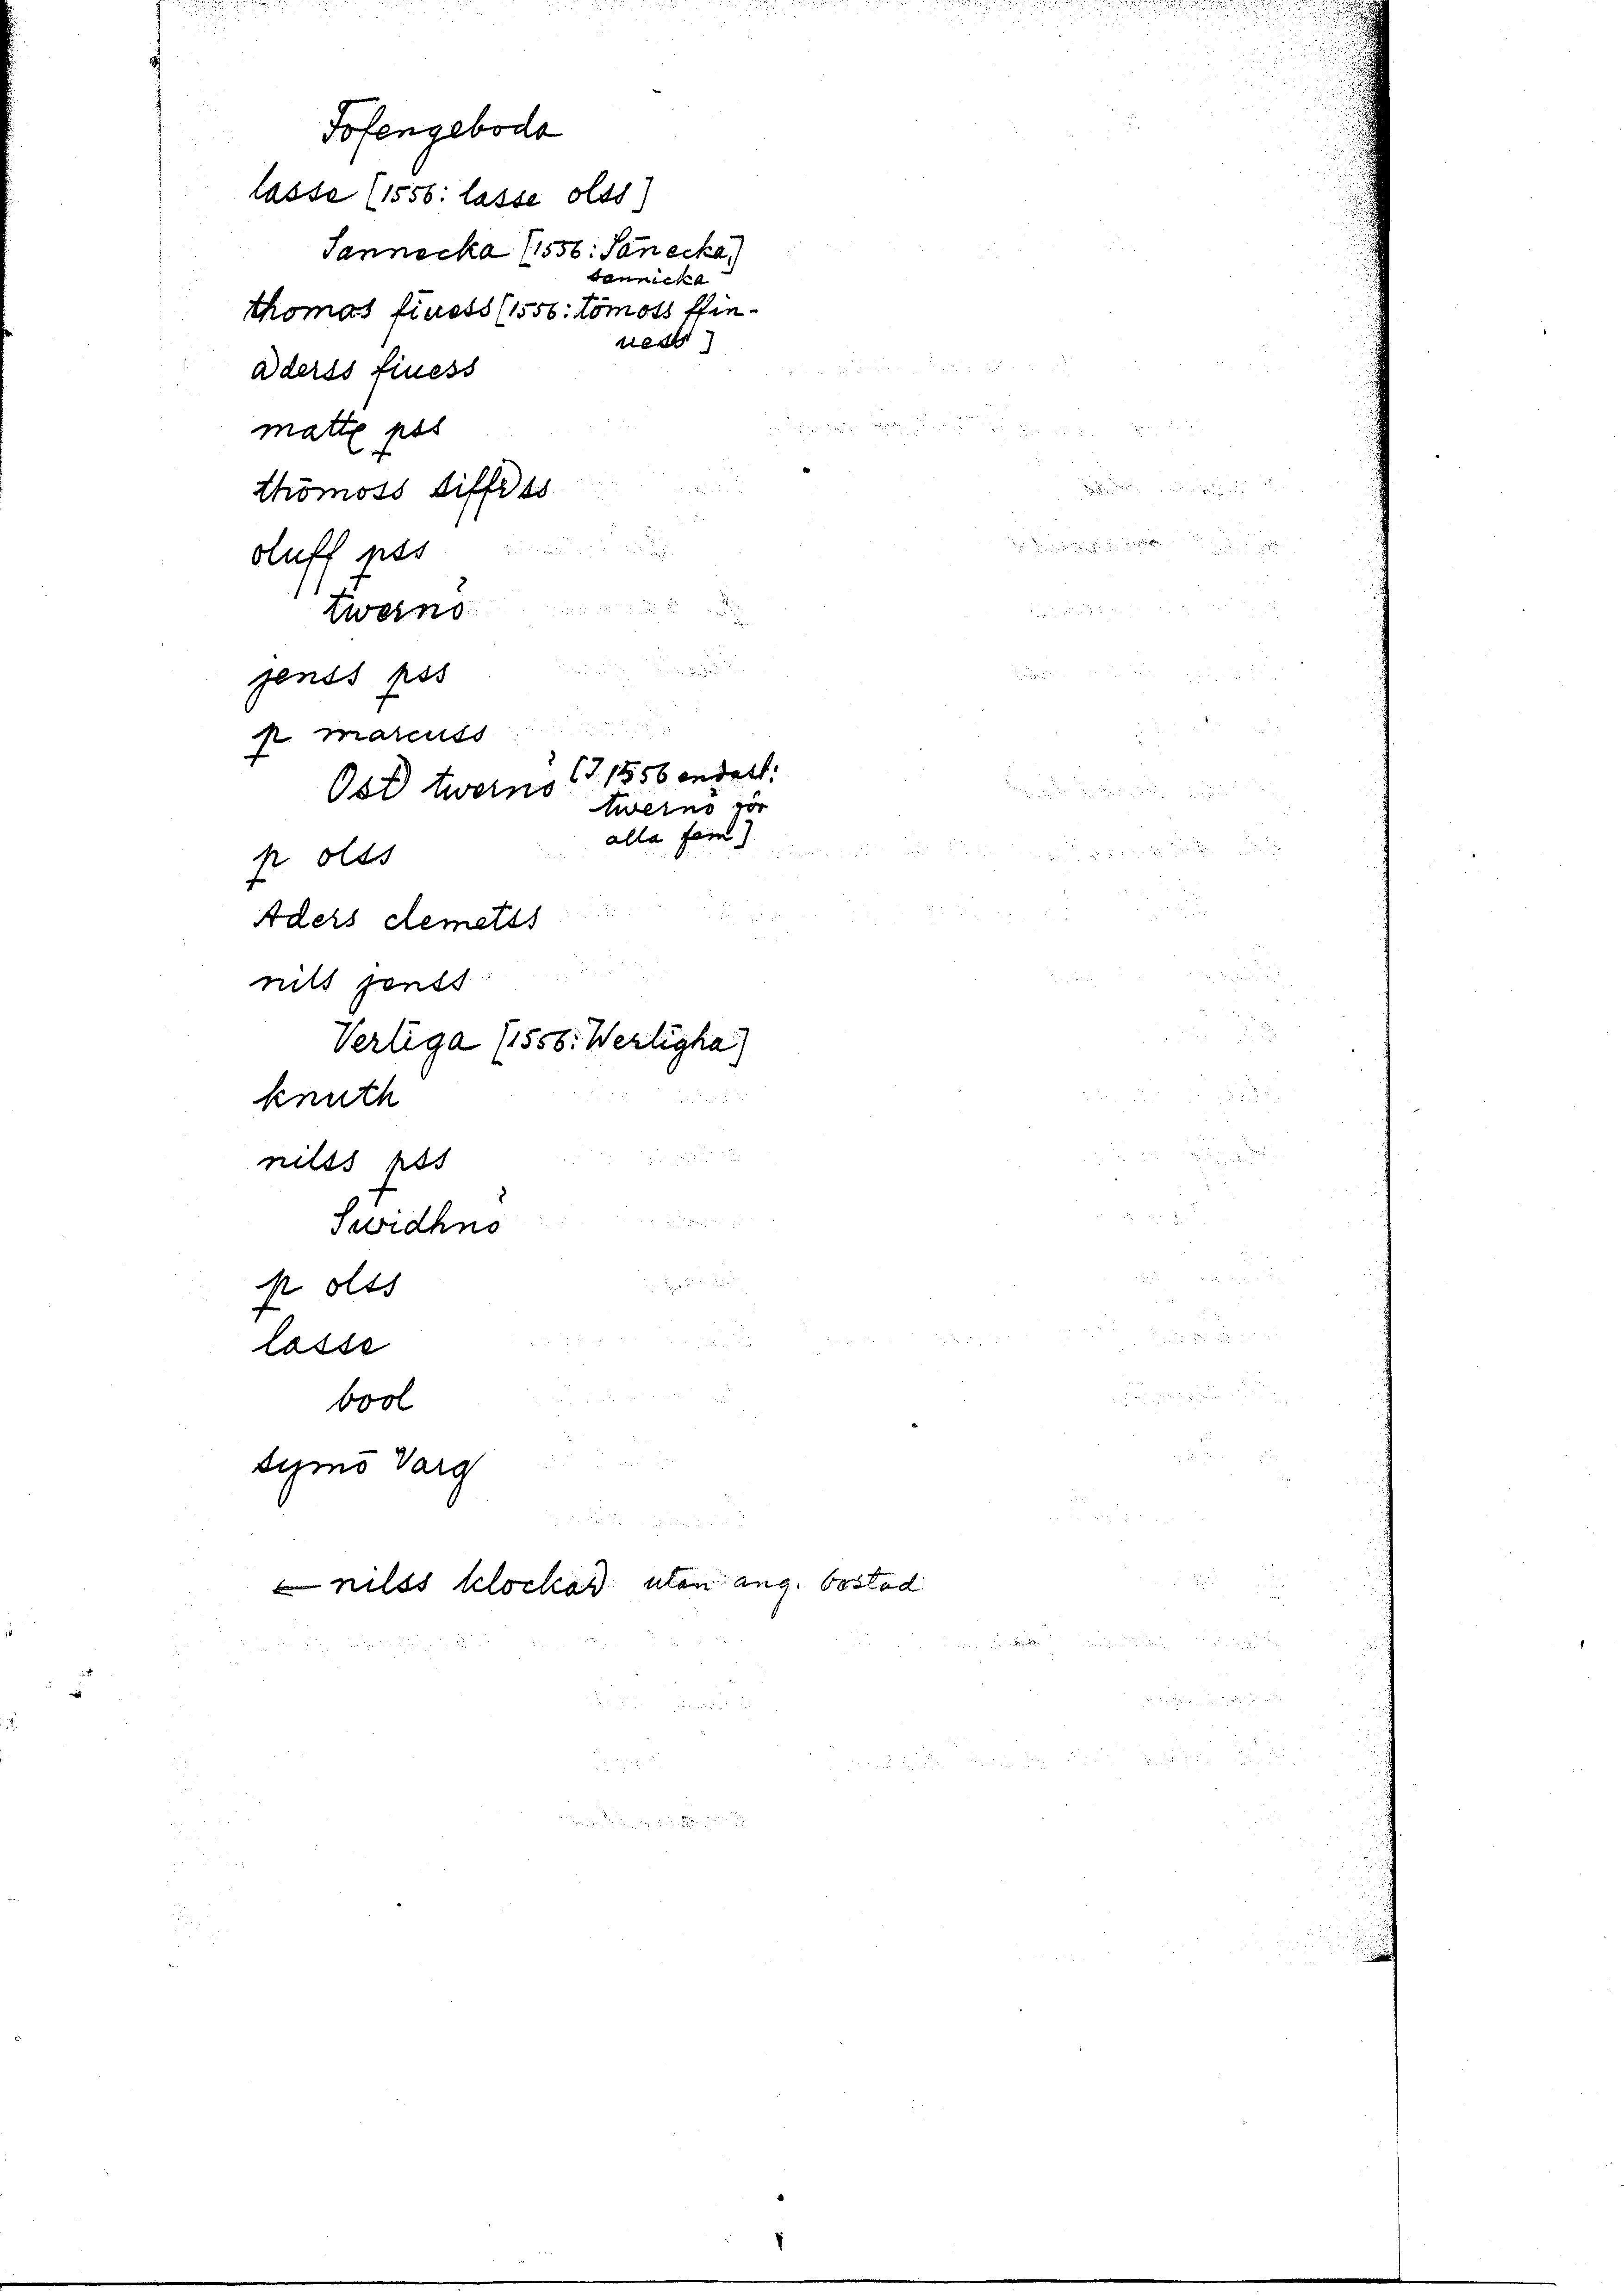 Tofengeboda
lasse [1556: lasse olss]
Sannecka [1556: Sānecka,]
sannicka
thomas finess [1556: tōmoss ffin-
ness]
aderss finess
matte pss
thōmoss siffrss
oluff pss
twernö
jenss pss
p marcuss
Ost twernö [I 1556 endast:
twernö för
alla fem]
p olss
Aders clemetss
nils jenss
Verliga [1556: Werligha]
knuth
nilss pss
Swidhnö
p olss
lasse
bool
symō Varg
nilss klockar utan ang. bostad